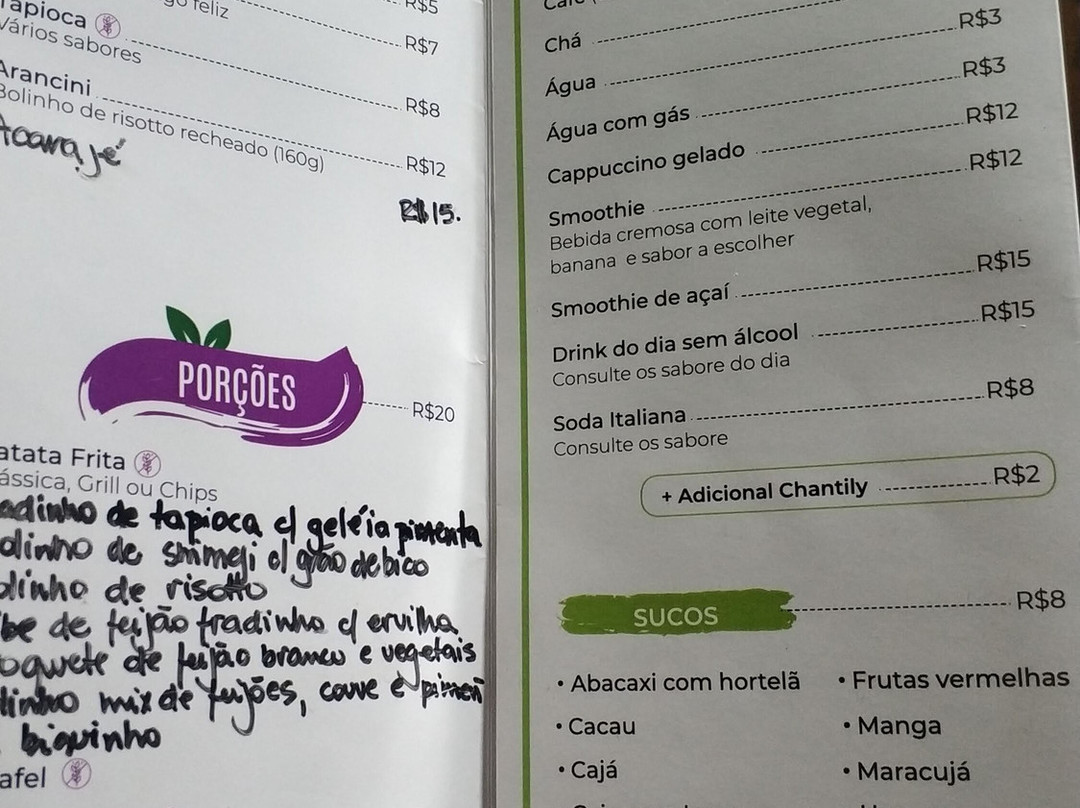 R$5
go feliz
R$7
Tapioca
Vários sabores
R$8
Arancini
Bolinho de risotto recheado (160g)
R$12
Acarajé
R$15.
PORÇÕES
R$20
atata Frita
ássica, Grill ou Chips
adinho de tapioca c/ geléia pimenta
dinho de shimeji c/ grão de bico
olinho de risotto
be de feijão fradinho c/ ervilha
oquete de feijão branco e vegetais
linho mix de feijões, couve e pimen
biquinho
afel
Café
R$3
Chá
R$3
Água
R$12
Água com gás
R$12
Cappuccino gelado
Smoothie
Bebida cremosa com leite vegetal,
banana e sabor a escolher
R$15
Smoothie de açaí
R$15
Drink do dia sem álcool
Consulte os sabore do dia
R$8
Soda Italiana
Consulte os sabore
+ Adicional Chantily R$2
SUCOS R$8
• Abacaxi com hortelã
• Cacau
• Cajá
• Frutas vermelhas
• Manga
• Maracujá